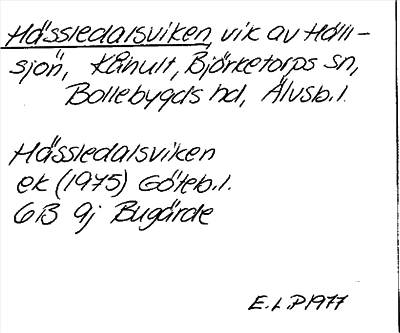 Hässledalsviken, vik av Häll-
sjön, Kånult, Björketorps sn,
Bollebygds hd, Älvsb.l.
Hässledalsviken
ek (1975) Göteb.l.
6B 9j Bugärde
E.L.P 1977